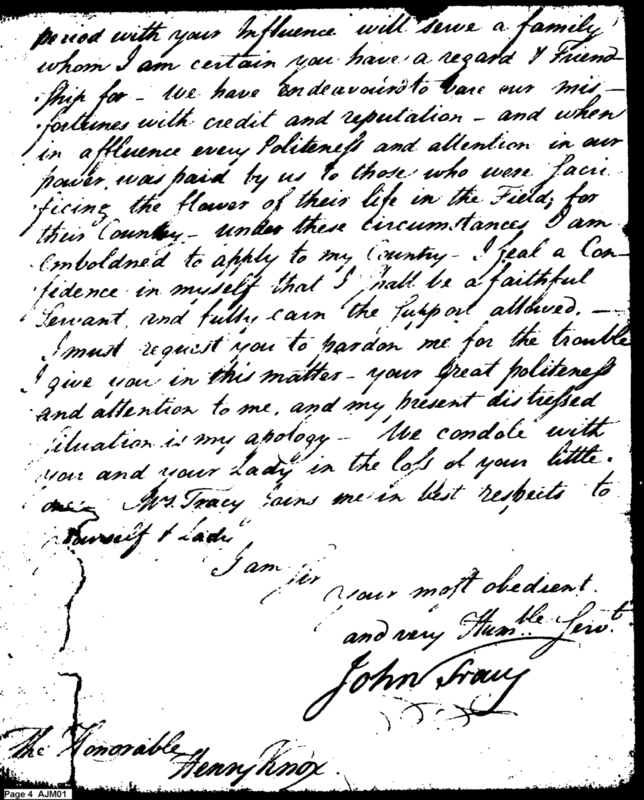 period with your Influence will serve a family
whom I am certain you have a regard & Friend-
ship for - We have endeavour'd to bare our mis-
fortunes with credit and reputation - and when
in affluence every Politeness and attention in our
power, was paid by us to those who were Sacri
ficing the flower of their life in the Field, for
their Country - under these circumstances I am
emboldned to apply to my Country - I feal a Con-
fidence in myself that I shall be a faithful
Servant, and fully earn the Support allowed. -
I must request you to pardon me for the trouble
I give you in this matter - your great politeness
and attention to me, and my present distressed
Situation is my apology - We condole with
you and your Lady in the loss of your little
one - Mrs. Tracy Joins me in best respects to
yourself & Lady
I am Sir
your most obedient
and very Humble Servt.
John Tracy
The Honorable
Henry Knox.
Page 4 AJM01